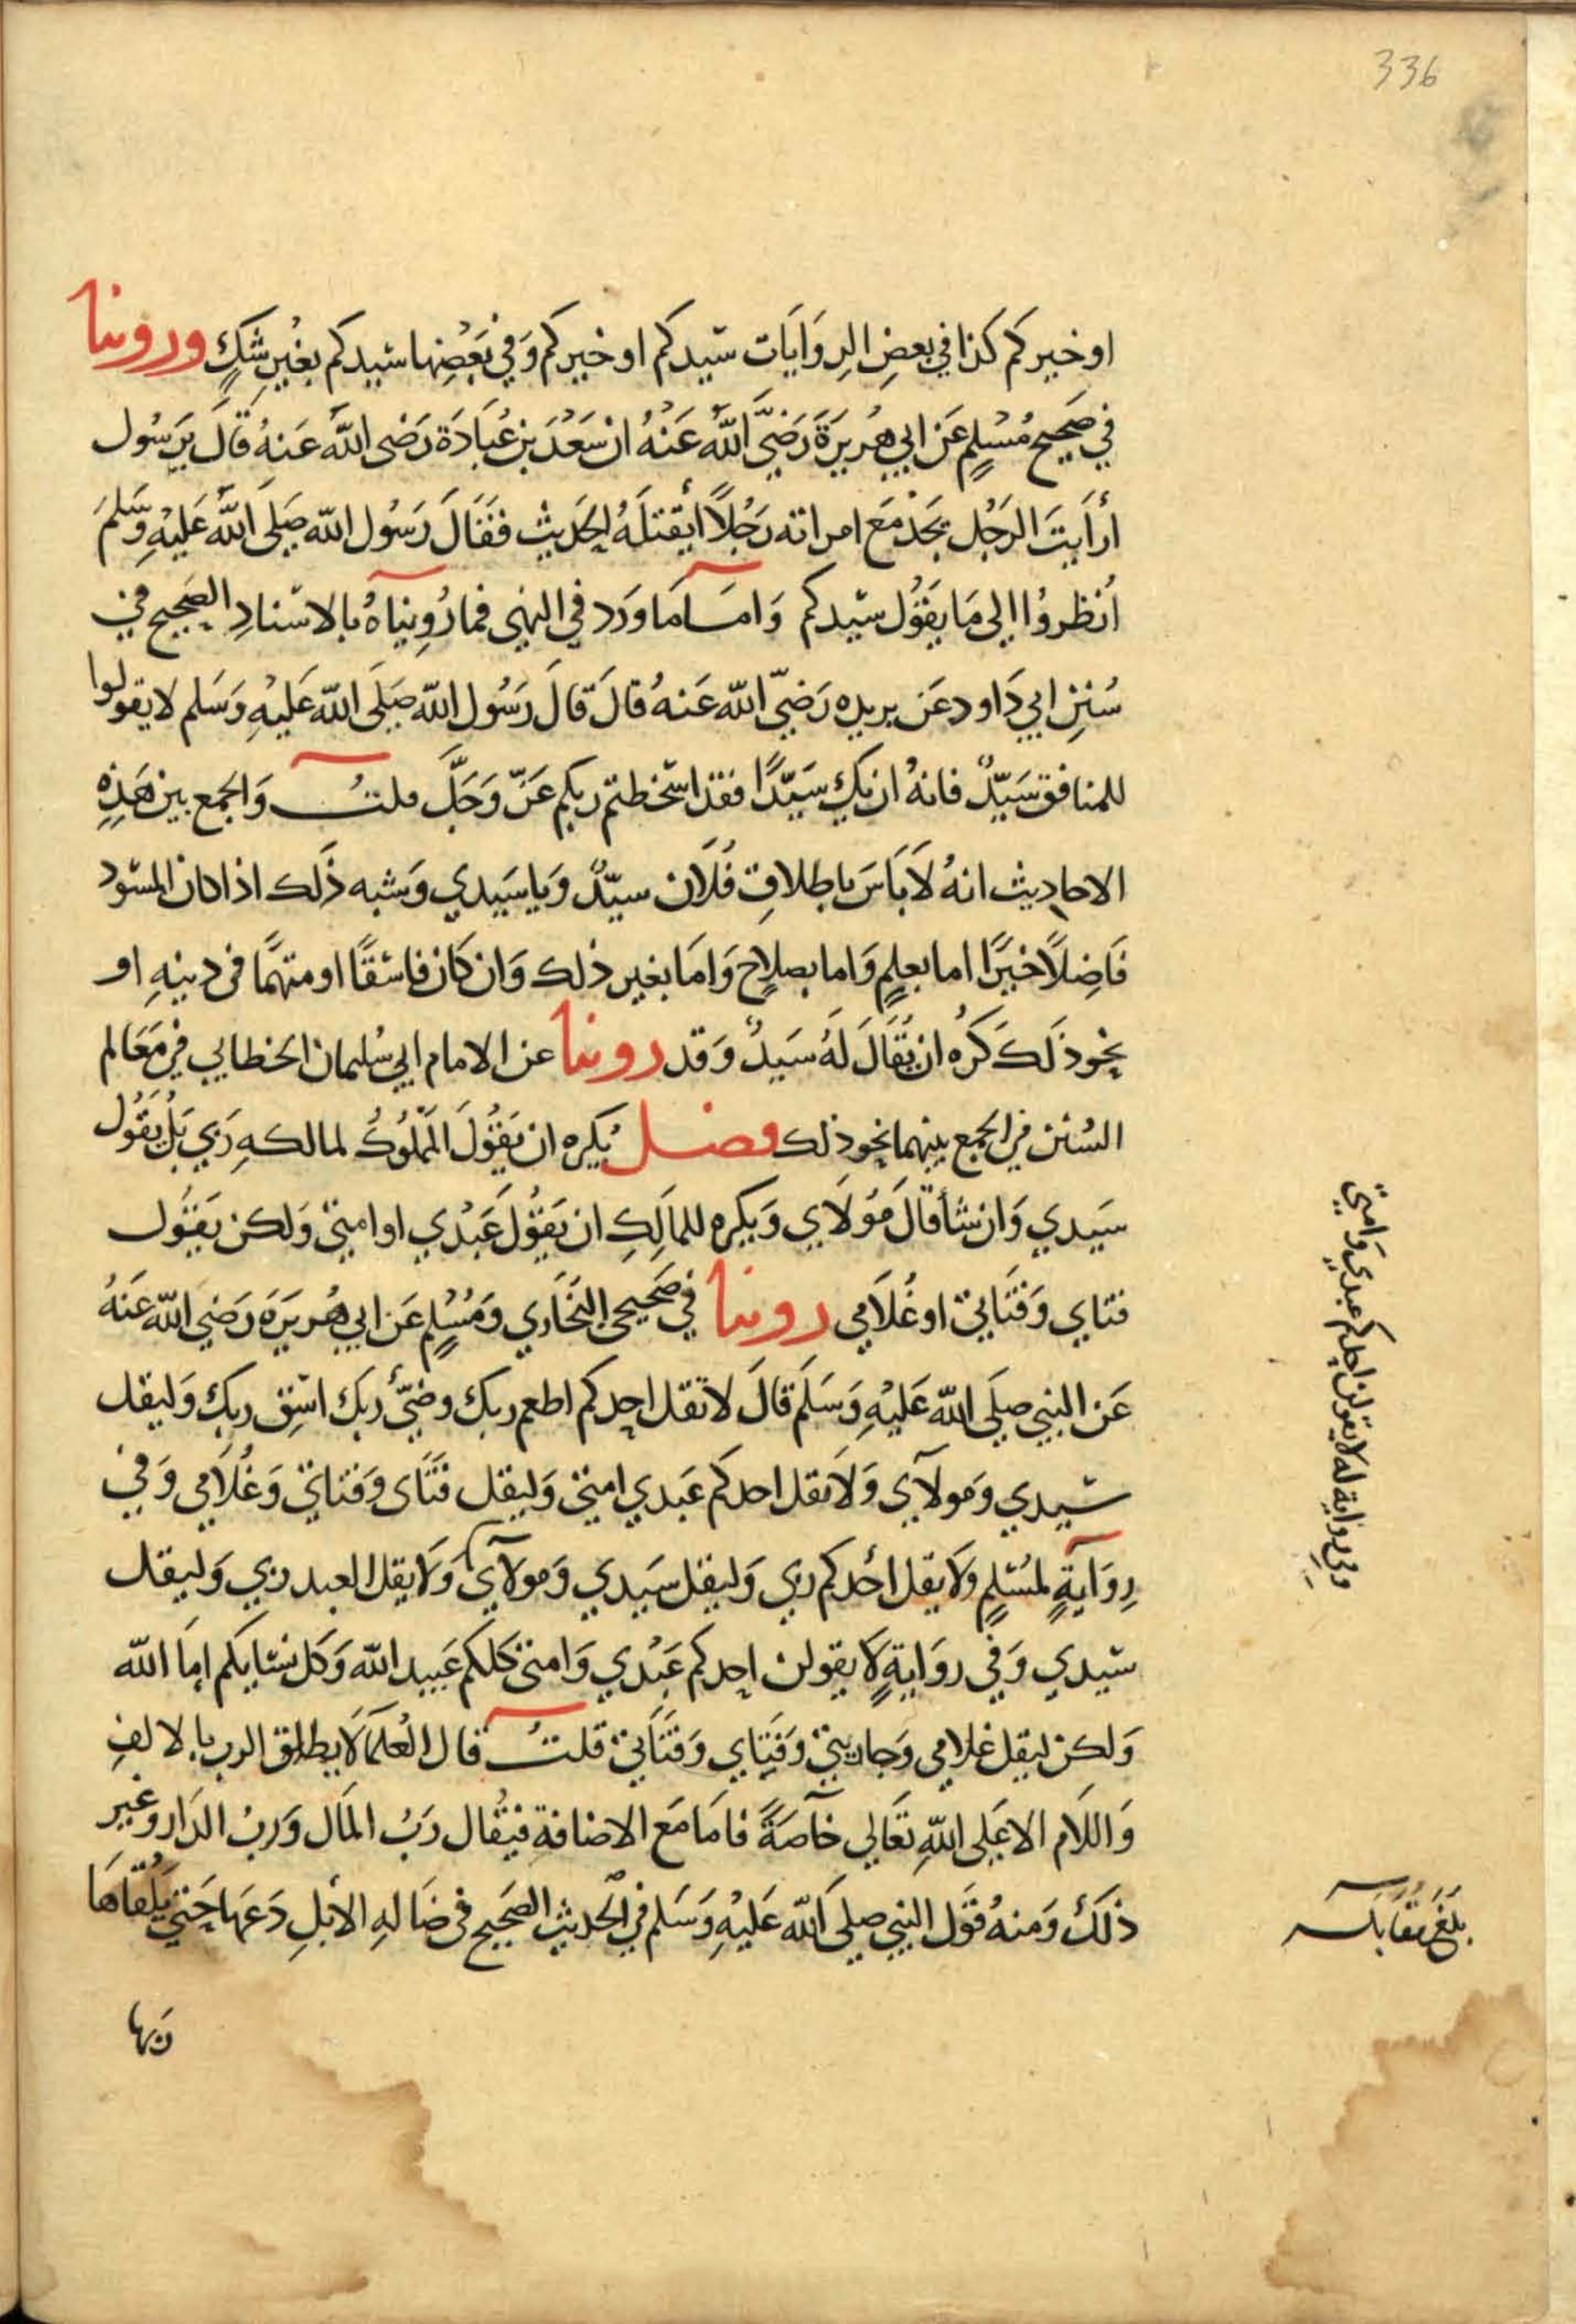 336
او خيركم كذا في بعضِ الرِوَايَات سَيدكم او خيركم وَفي بَعْضِها سَيدكم بغيرِ شَكٍ وروينا
في صَحيح مُسْلمٍ عَن ابي هُريرَةَ رَضيَّ اللَّهُ عَنْهُ ان سَعْدَ بن عُبَادَة رَضى اللَّه عَنهُ قَالَ يرَسُول
أرأَيتَ الرَجُل يَجَدُ مَعَ امراته رَجُلاً أيقتلَهُ الحَديث فقَالَ رَسُول اللّه صَلى اللَّه عَليْهِ وَسَّلمَ
اُنظروُا الى مَا يَقوُل سَيّدكم وَامَّا مَا وَرَد في النهى فما رُوِينَاهُ بالاسْنادِ الصَحيح في
سُننِ ابي دَاود عَن بريده رَضيّ اللّه عَنهُ قالَ قالَ رَسُول اللّه صَلَى اللّه عَليْهِ وَسَلم لَا يقولوا
للمنافق سَيّدٌ فانهُ ان يكُ سَيّدًا فقد اسْخطتم ربكم عَزّ وَجَلَّ قلتُ وَالجمع بين هَذِهِ
الاحاديث انهُ لَا بَاسَ باطلاقِ فُلَان سيّدٌ وَيا سَيدي وَشبه ذَلك اذا كان المسَود
فَاضِلاً خيرًا اما بعلمٍ وَاما بصلاحٍ وَامَا بغير ذلك وَان كَان فاسقًا او متهمًا فى دينهِ او
نحو ذَلكَ كَرُه ان يُقَالَ لَهُ سَيدٌ وَقد روينا عن الامام ابي سُليمان الخطابي في مَعَالم
السُنن في الجمع بينهما نحو ذلك فصل يُكره ان يَقوُلَ المَمْلُوكُ لمالكهِ رَبي بَلْ يَقوُل
سَيدي وَان شأ قالَ مَوْلَاي وَيكره للمَالكِ ان يَقوُلَ عَبْدي او امتي وَلكن يَقوُل
فتاي وَفتَاتي او غُلَامى روينا في صَحيحي البُخَاري وَمُسْلمٍ عَن ابي هُريرَةَ رَضي اللّه عَنهُ
عَن النبي صلَى اللّه عَليْهِ وَسَلمَ قالَ لَا تقل احدكم اطعم ربك وضئّ رَبك اسْقِ ربك وَليقل
سَيدي وَمولآي وَلَا تقل احدكم عَبدي امتي وَليقل فتَاى وَفتاتي وَغُلَامى وَفي
رِوَآيةٍ لمسُلمٍ وَلَا يقل أحُدكم ربى وَليقل سَيدي وَمولآي وَلَا يقل العبد ربي وَليقل
سَيدي وَفي روَايةٍ لَا يقولن احدكم عَبْدي وَامتي كلكم عَبيد اللّه وَكل نسَايكم اِمَا اللّه
وَلكن ليقل غلامي وَجاريتي وَفتاي وَفتَاتي قلتُ قال العُلمَا لَا يطلق الرب بالالفِ
وَاللَام الا عَلى اللّهِ تعَالى خآصَةً فامَا مَع الاضافةِ فيقُال رَبُ المَال وَربُ الدَار وَغير
ذلَكَ وَمنهُ قوَل النبي صلى اللّه عَليْهِ وَسَلم في الحَديث الصَحيح فى ضَالهِ الابلِ دَعهَا حَتي يَلقَاهَا
ربها
وفي رواية له لا يقولن احدكم عبدي وامتي
بلَغَ مقَابَلة